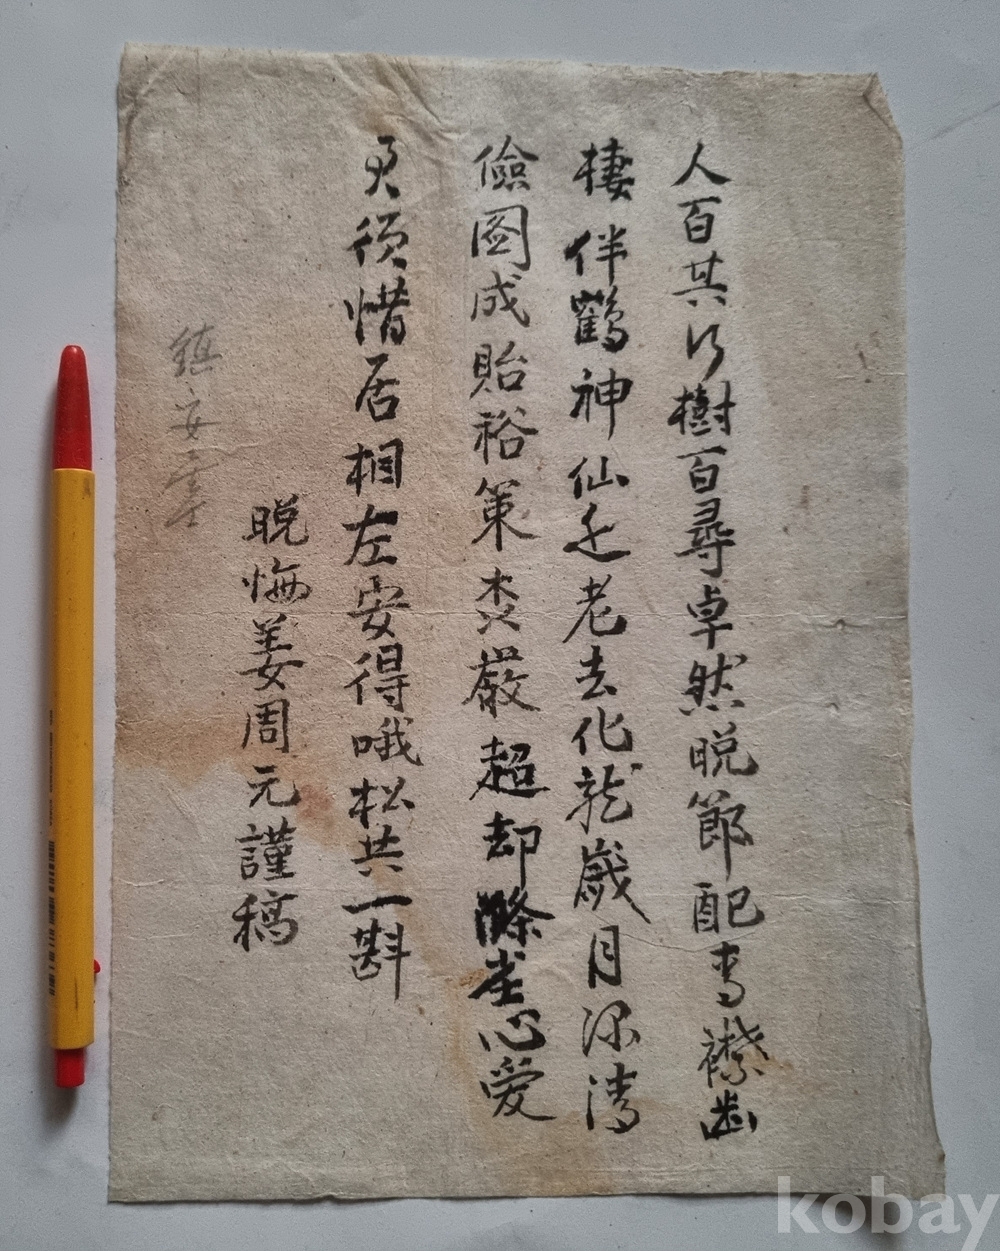 人百其行樹百尋卓然晩節配青襟幽
棲伴鶴神仙近老去化龍歲月深清
儉圖成貽裕策焚巖超却滌塵心爱
君須惜居相左安得哦松共一斟
晩悔姜周元謹稿
鎮安
kobay